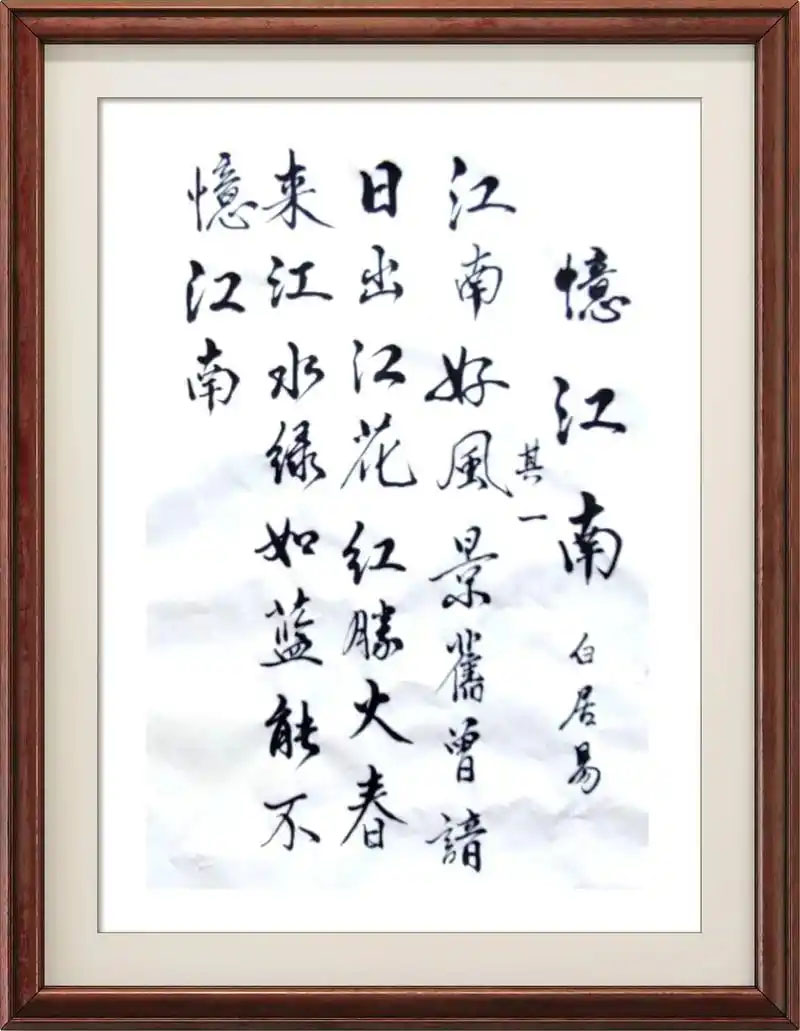 憶江南 白居易
其一
江南好風景舊曾諳
日出江花红勝火春
来江水绿如蓝能不
憶江南